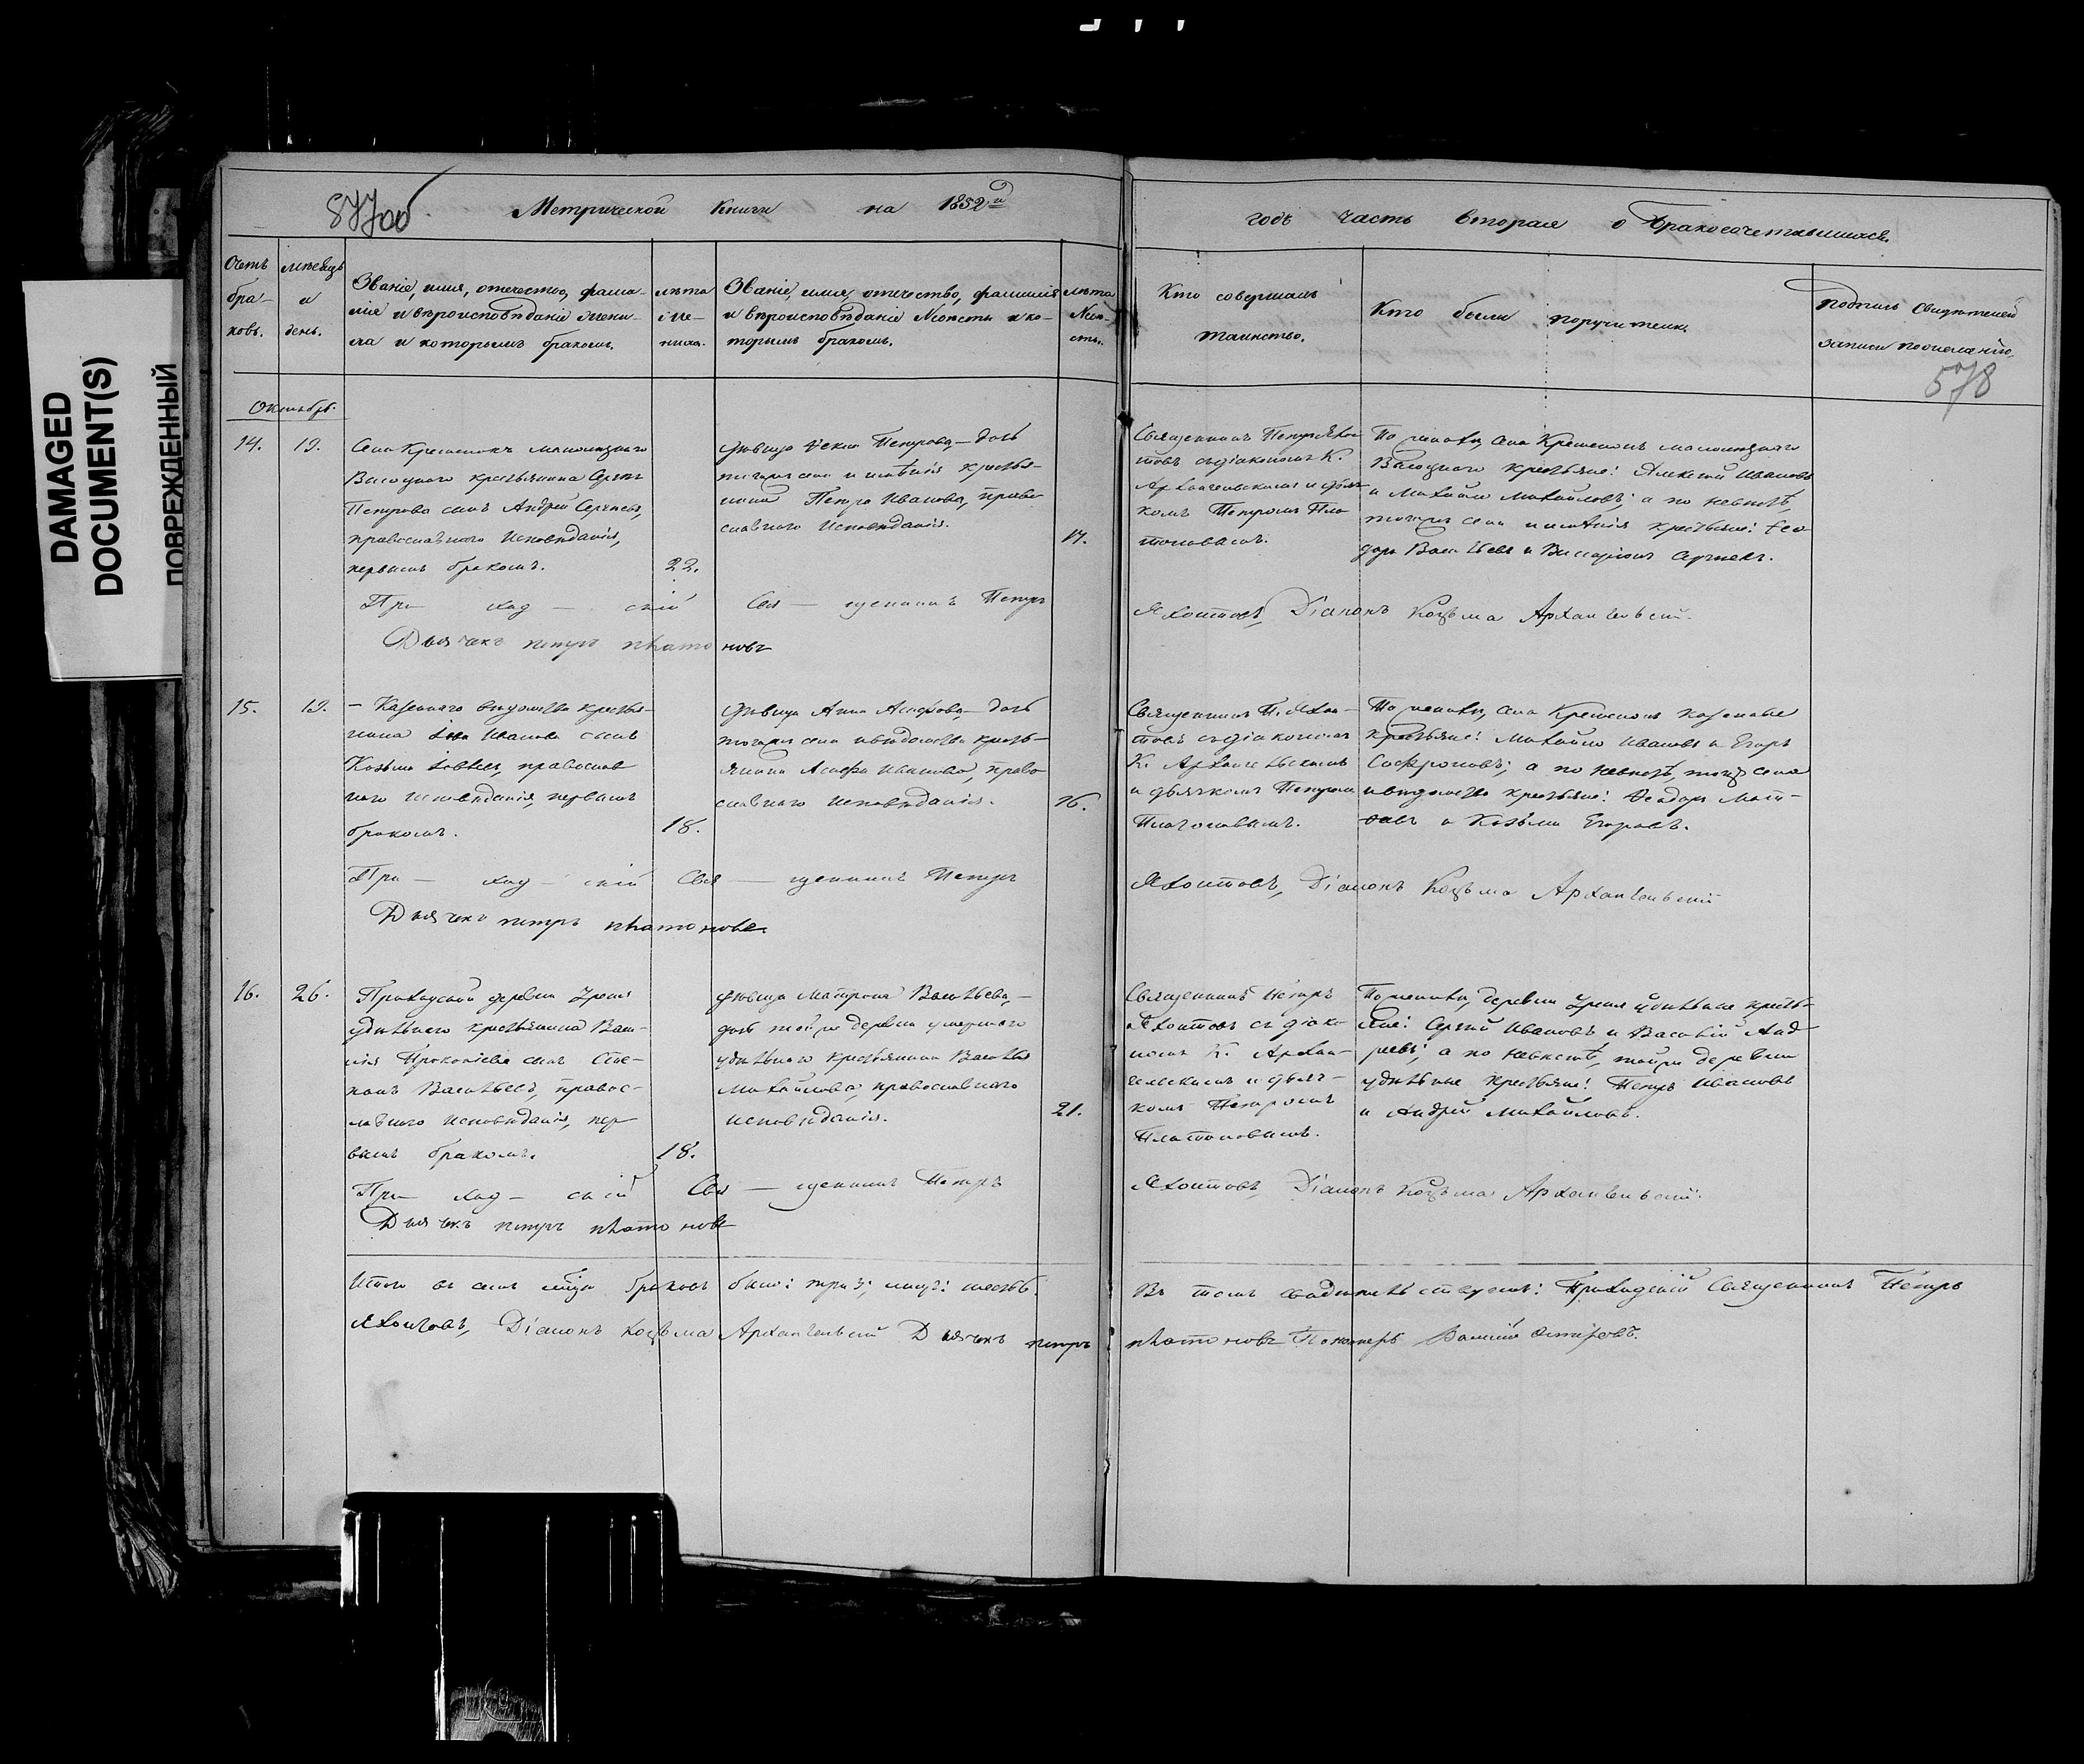 DAMAGED
DOCUMENT(S)
ПОВРЕЖДЕННЫЙ
577об
Метрической Книги на 1852й
годъ часть вторая о бракосочетавшихся.
Счетъ бра-ковъ.
мѣсяцъ и день.
Званіе, имя, отечество, фами-
лія и вѣроисповѣданіе жени-
ха и которымъ бракомъ.
лѣта
же-
ниха.
Званіе, имя, отечество, фамилія
и вѣроисповѣданіе невѣсты и ко-
торымъ бракомъ.
лѣта
Невѣ-
сты.
Кто совершалъ
таинство.
Кто были поручители.
Подпись свидѣтелей
записи по желанію.
578
Октябрь.
14. 19.
крестьянина
Петрова сынъ Андрей Сергѣевъ,
православнаго исповѣданія,
первымъ бракомъ. 22.
дѣвица Петрова, дочь
тогоже села и имѣнія крестья-
нина Петра Иванова, право-
славнаго исповѣданія. 17.
Священникъ Петръ Яхон-
товъ съ діакономъ К.
Архангельскимъ и дьяч-
комъ Петромъ Пла-
тоновымъ.
По женихѣ, села
крестьяне: Алексѣй Ивановъ
и Михайло Михайловъ; а по невѣстѣ,
тогоже села и имѣнія крестьяне: Ѳео-
доръ Васильевъ и Сергѣевъ.
При - ход - скій Свя - щенникъ Петръ
Яхонтовъ, Діаконъ Козьма Архангельскій.
Дьячекъ петръ платоновъ
15. 19.
- Казеннаго вѣдомства крестья-
нина Иванова сынъ
Козьма православ
наго исповѣданія, первымъ
бракомъ. 18.
дѣвица Анна дочь
тогоже села и вѣдомства кресть-
янина Иванова, право-
славнаго исповѣданія. 16.
Священникъ П. Яхон-
товъ съ діакономъ
К. Архангельскимъ
и дьячкомъ Петромъ
Платоновымъ.
По женихѣ, села казенные
крестьяне: Михайло Ивановъ и Егоръ
Софроновъ; а по невѣстѣ, тогоже села
и вѣдомства крестьяне: Ѳеодоръ
и Козьма Егоровъ.
При - ход - скій Свя - щенникъ Петръ
Яхонтовъ, Діаконъ Козьма Архангельскій
Дьячекъ петръ платоновъ.
16. 26.
Приходской деревни
удѣльнаго крестьянина Васи-
лія Прокопіева сынъ Сте-
панъ Васильевъ, правос-
лавнаго исповѣданія, пер-
вымъ бракомъ. 18.
дѣвица Матрона Васильева, -
дочь той же деревни умершаго
удѣльнаго крестьянина Василья
Михайлова, православнаго
исповѣданія. 21.
Священникъ Петръ
Яхонтовъ съ діако-
номъ К. Архан-
гельскимъ и дьяч-
комъ Петромъ
Платоновымъ.
По женихѣ, деревни удѣльные кресть-
яне: Сергѣй Ивановъ и Василій Анд-
реевъ; а по невѣстѣ, тойже деревни
удѣльные крестьяне: Петръ Ивановъ
и Андрей Михайловъ.
При - ход - скій Свя - щенникъ Петръ
Яхонтовъ, Діаконъ Козьма Архангельскій.
Дьячекъ петръ платоновъ
Итого въ семъ мѣсяцѣ браковъ было: три 3; лицъ: шесть 6.
Въ томъ свидѣтельствуемъ: Приходскій Священникъ Петръ
Яхонтовъ, Діаконъ Козьма Архангельскій Дьячекъ петръ
платоновъ Пономарь